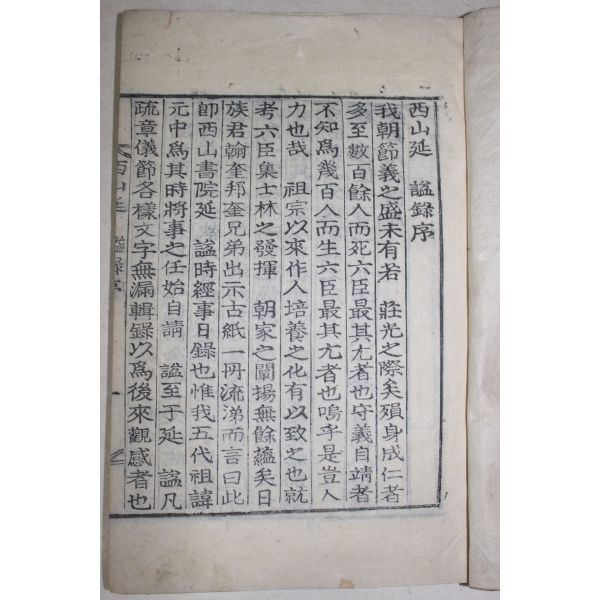 西山延　諡錄序
我朝節義之盛未有若　莊光之際矣殞身成仁者
多至數百餘人而死六臣最其尤者也守義自靖者
不知爲幾百人而生六臣最其尤者也嗚乎是豈人
力也哉　祖宗以來作人培養之化有以致之也就
考六臣集士林之發揮　朝家之闡揚無餘蘊矣日
族君翰奎邦奎兄弟出示古紙一冊流涕而言曰此
卽西山書院延　諡時經事日錄也惟我五代祖諱
元中爲其時將事之任始自請　諡至于延　諡凡
疏章儀節各樣文字無漏輯錄以爲後來觀感者也
西山延　諡錄序　一